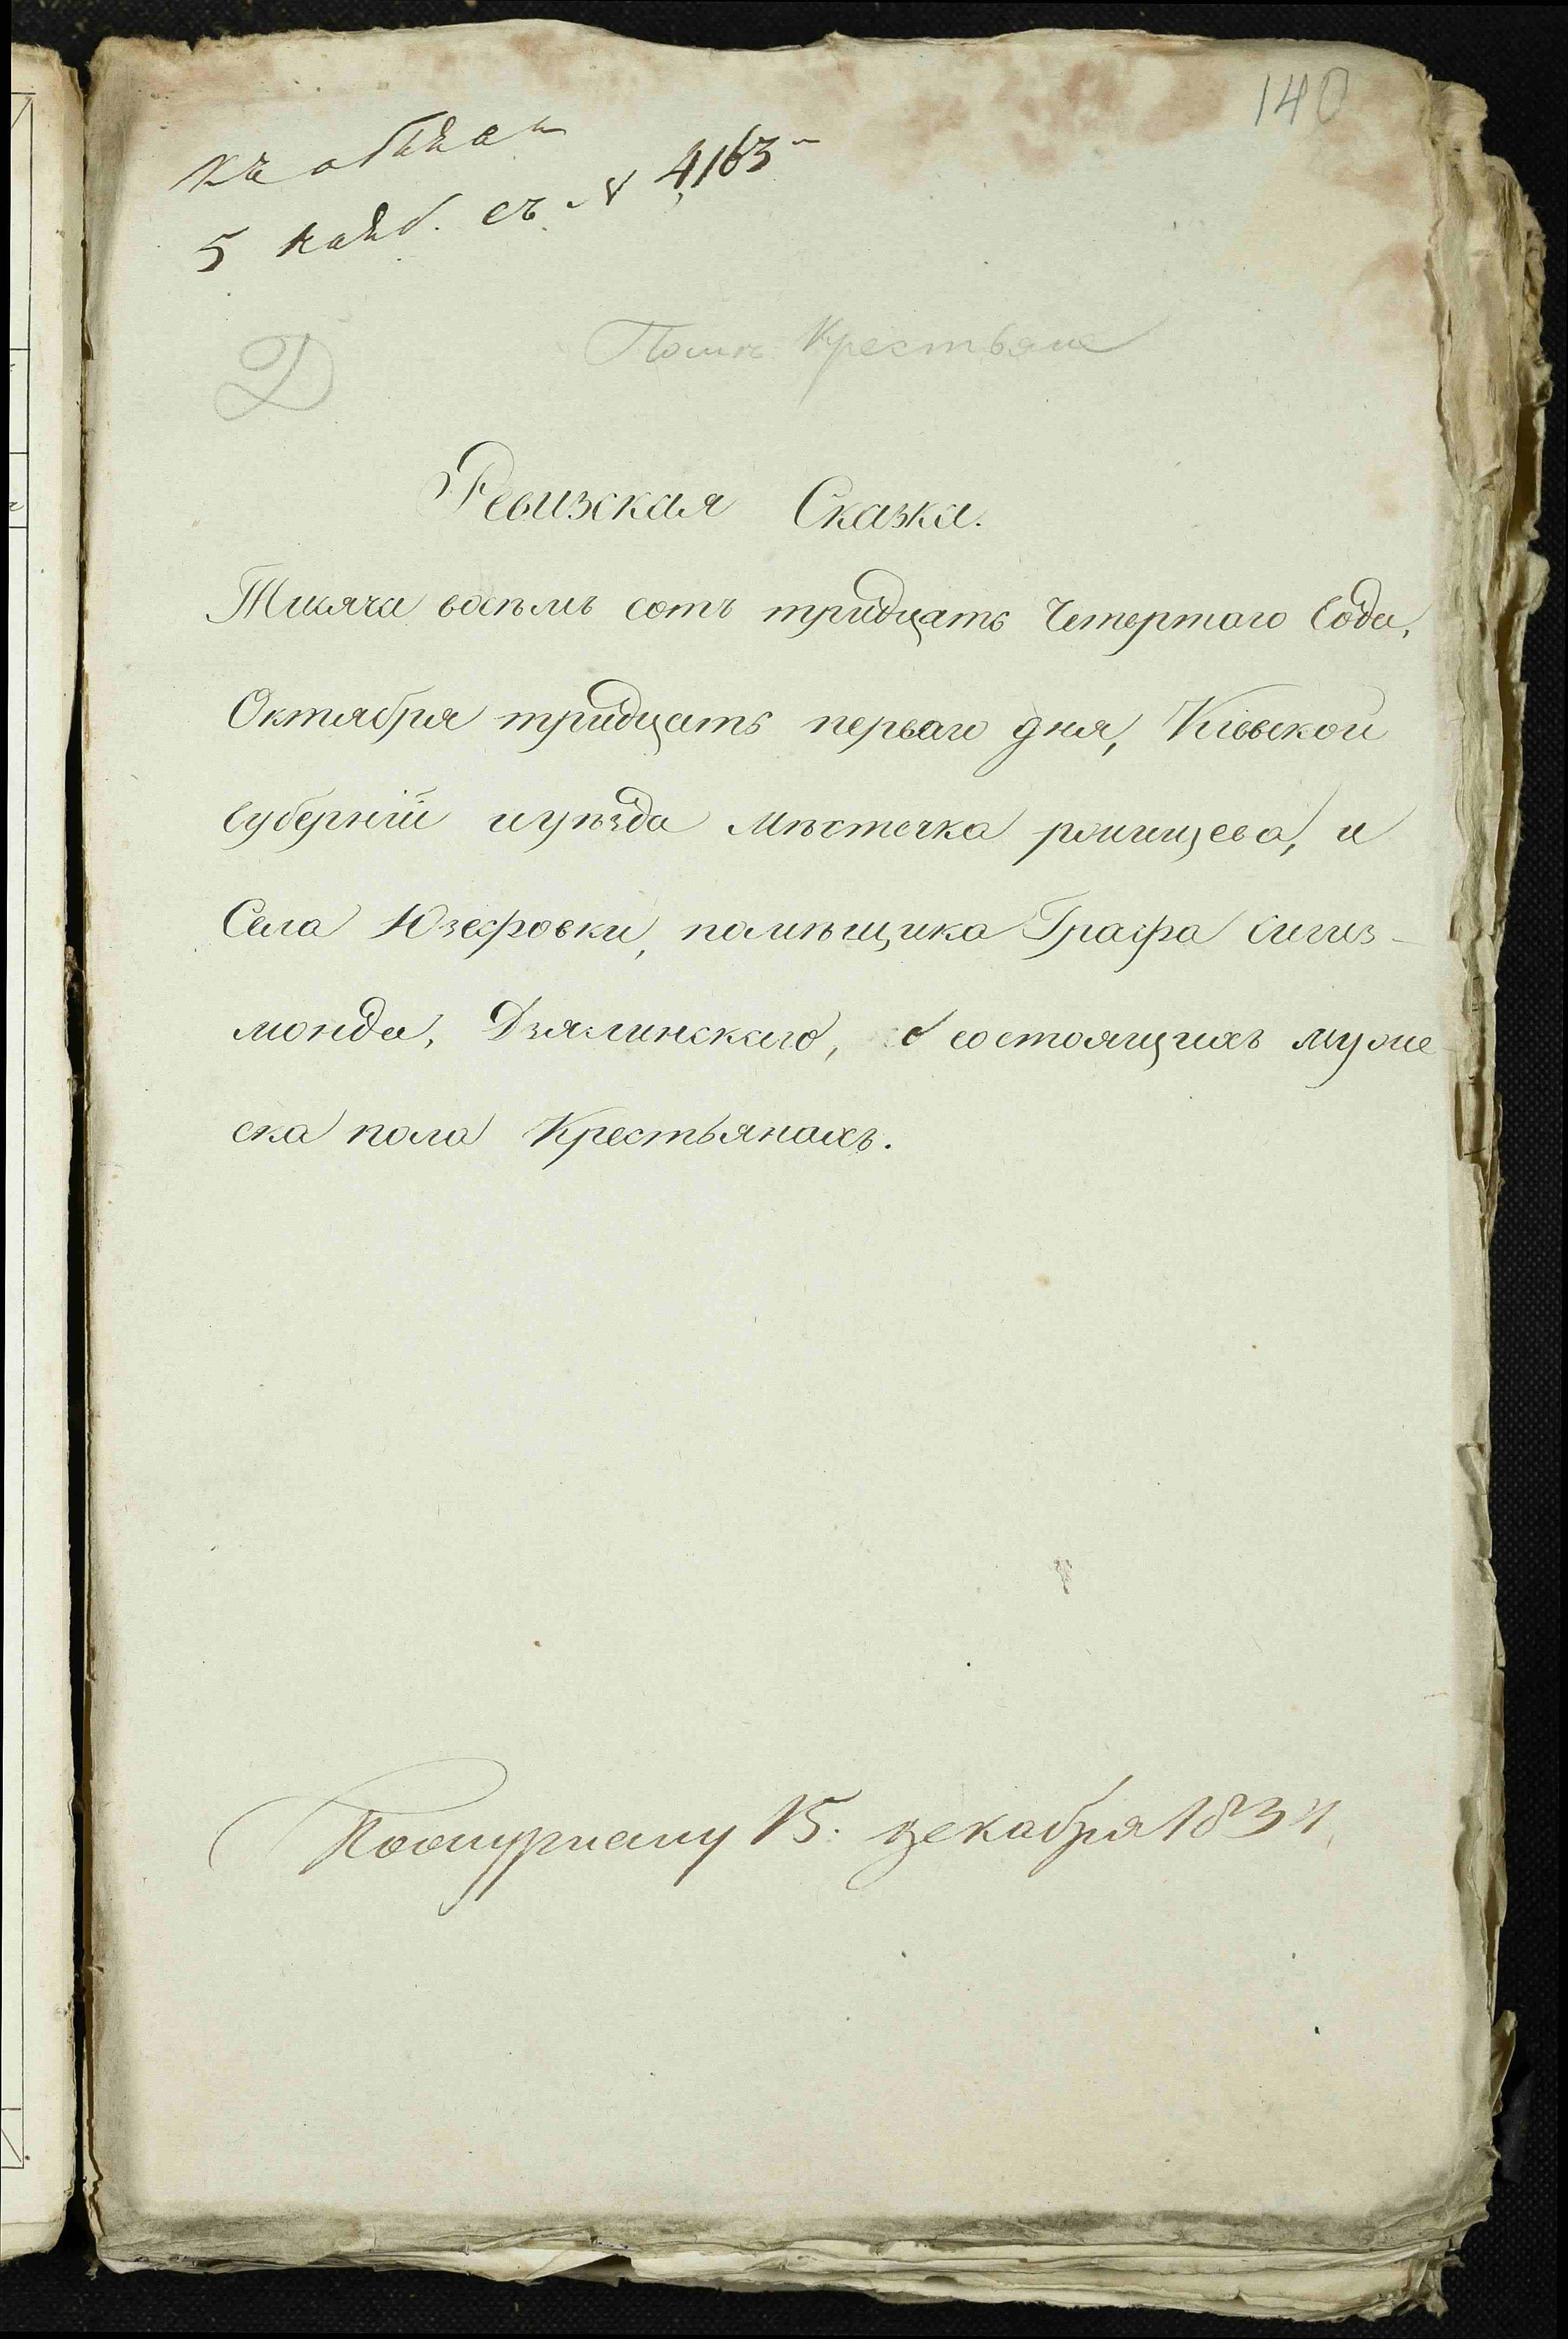 140
къ объяв
5 нояб. съ № 4163
Д
Помѣ. Крестьяне
Ревизская Сказка.
Тисяча восѣмъ сотъ тридцать Четвертаго Года,
Октября тридцать перваго дня, Кіевской
Губерніи иуѣзда Мѣстечка ржищева, и
Села Юзефовки, помѣщика Графа Сигиз-
монда, Дзялинскаго, о состоящихъ муже-
ска пола Крестьянахъ.
15. декабря 1834